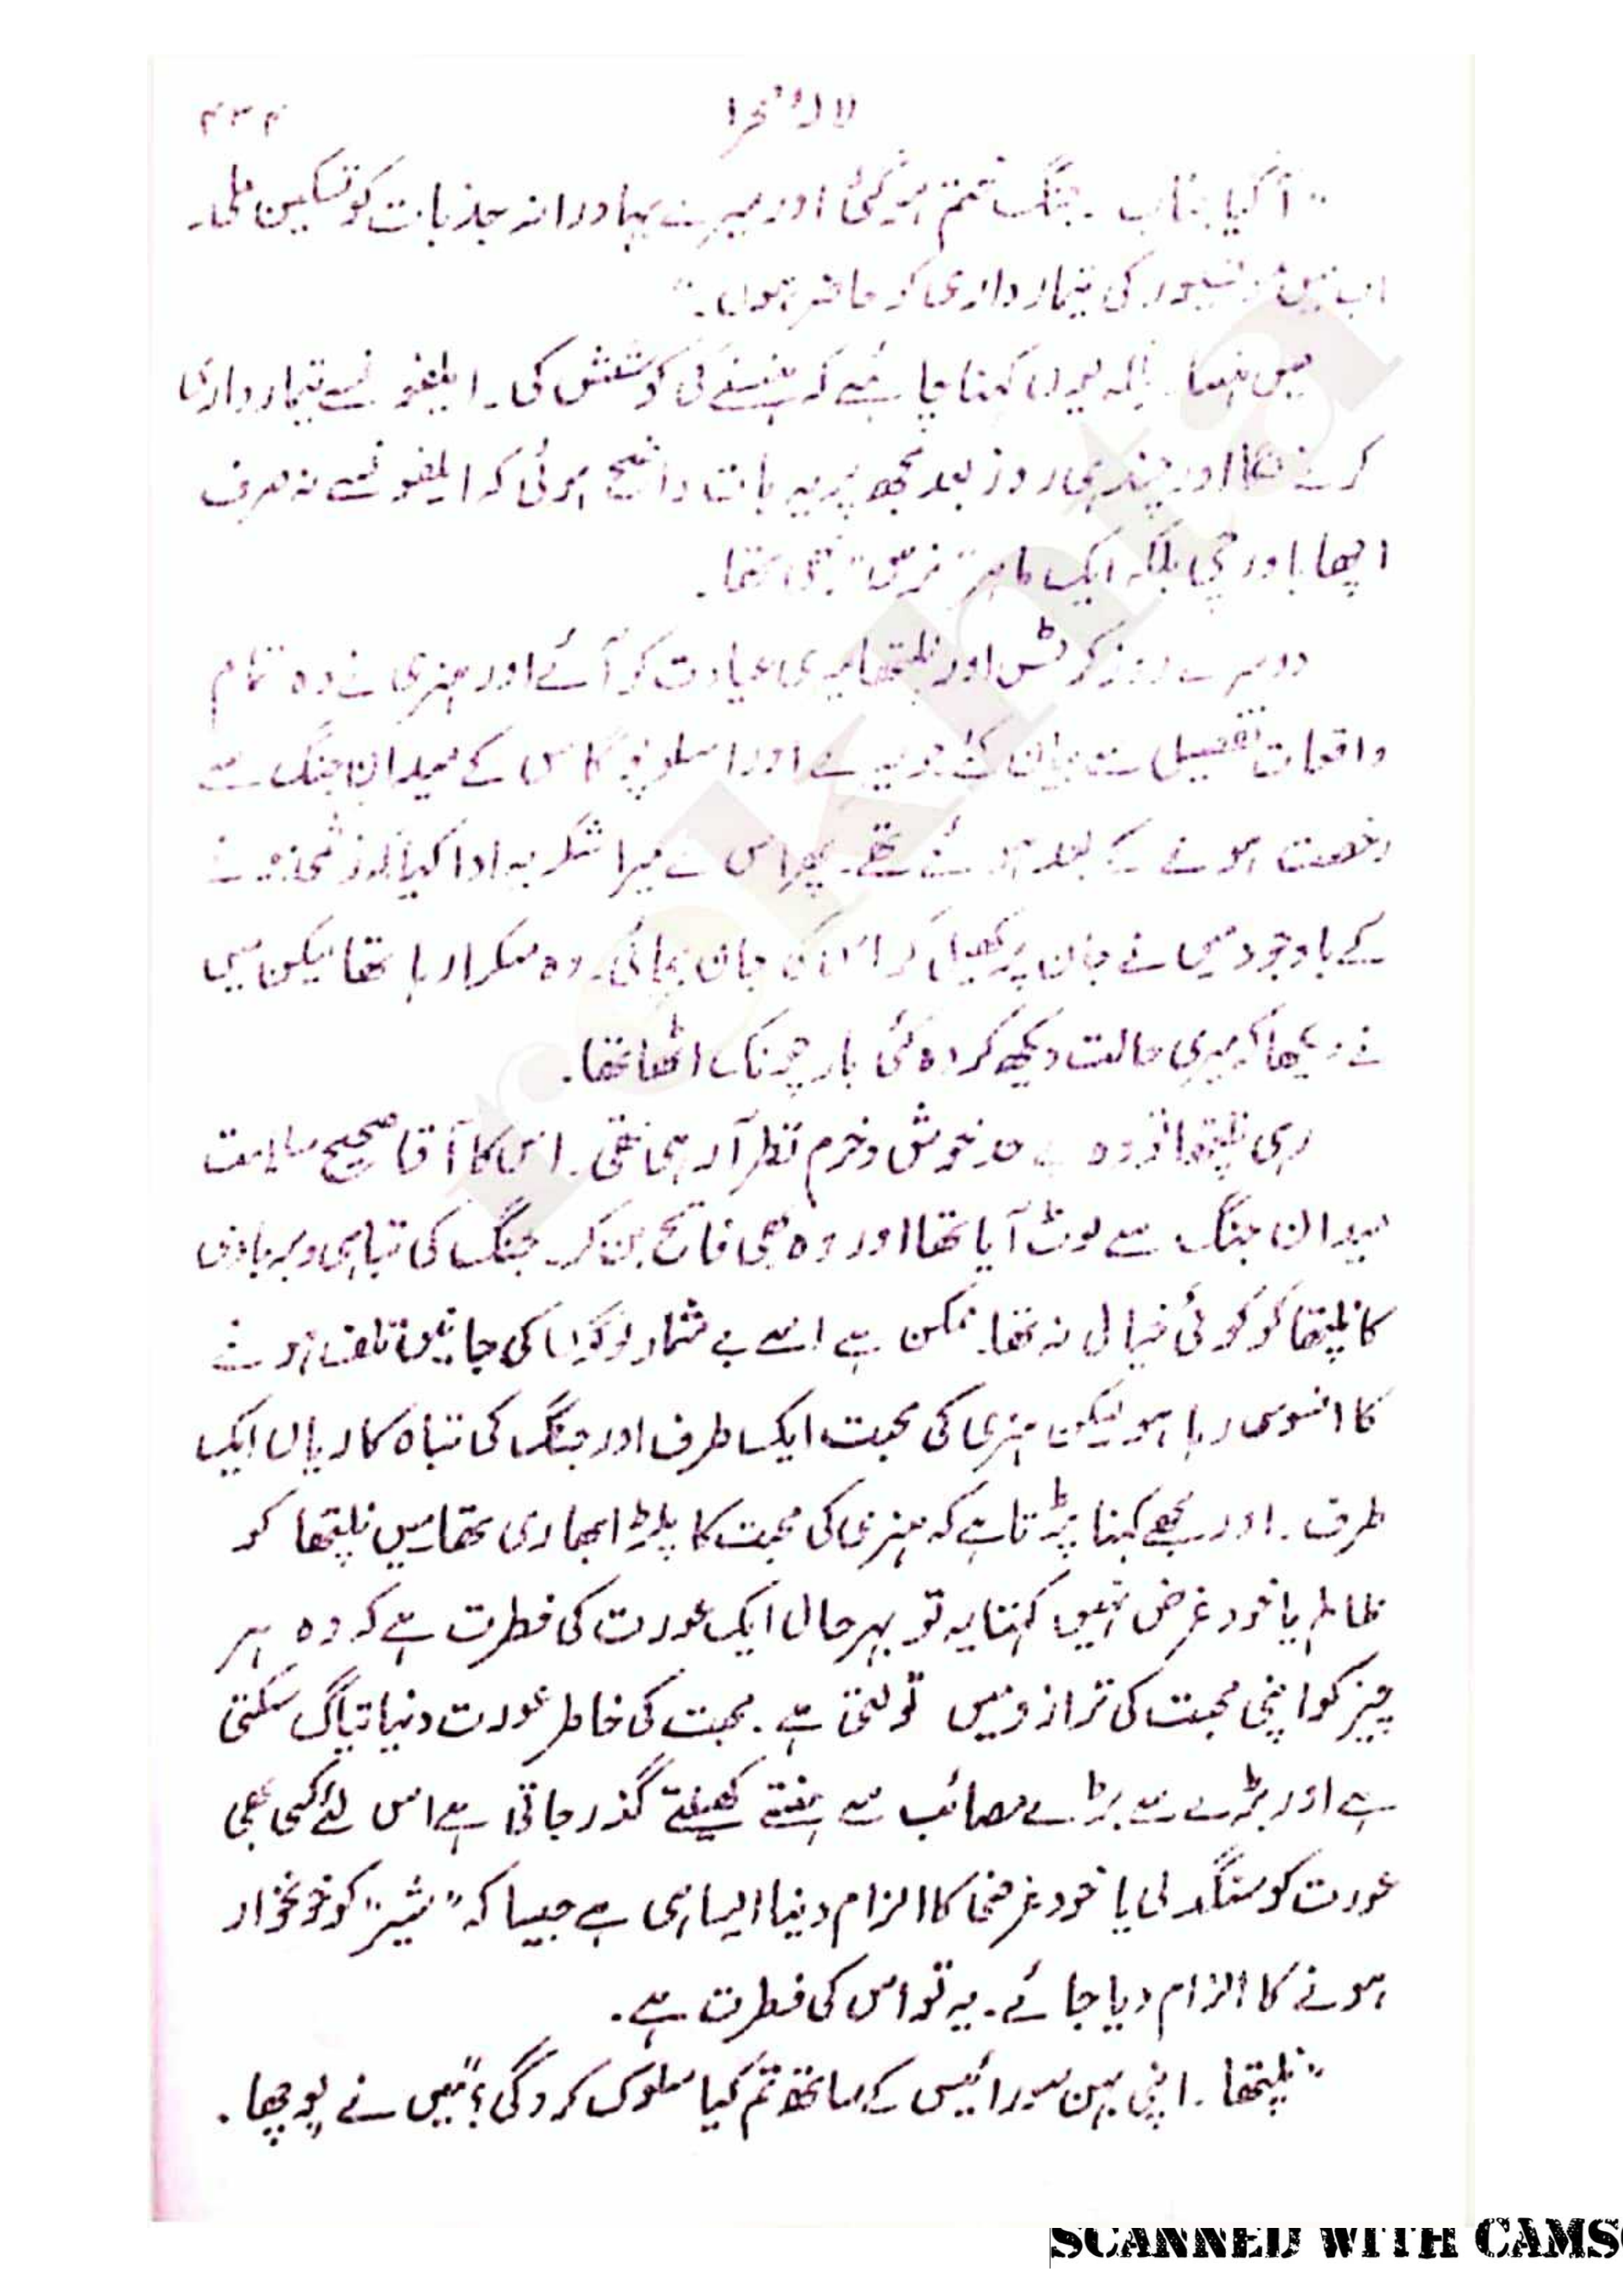 لالۂ صحرا
۴۳۴
"آ گیا جناب ۔ جنگ ختم ہو گئی اور میرے بہادرانہ جذبات کو تسکین ملی۔
اب میں موسیور کی تیمار داری کو حاضر ہوں۔"
میں ہنسا۔ بلکہ یوں کہنا چاہئے کہ ہنسنے کی کوشش کی۔ ایلفونسے تیمار داری
کرنے لگا اور چند ہی روز بعد مجھ پر یہ بات واضح ہوئی کہ ایلفونسے نہ صرف
اچھا باورچی بلکہ ایک ماہر "نرس" بھی تھا۔
دوسرے روز کرٹس اور نلپتھا میری عیادت کو آئے اور ہنری نے وہ تمام
واقعات تفصیل سے بیان کئے جو میرے اور امسلوپوگاس کے میدان جنگ سے
رخصت ہونے کے بعد ہوئے تھے۔ پھر اس نے میرا شکریہ ادا کیا کہ زخمی ہونے
کے باوجود میں نے جان پر کھیل کر اس کی جان بچائی۔ وہ مسکرا رہا تھا لیکن میں
نے دیکھا کہ میری حالت دیکھ کر وہ کئی بار چونک اٹھا تھا۔
رہی نلپتھا تو وہ بے حد خوش و خرم نظر آ رہی تھی۔ اس کا آقا صحیح سلامت
میدان جنگ سے لوٹ آیا تھا اور وہ بھی فاتح بن کر۔ جنگ کی تباہی و بربادی
کا نلپتھا کو کوئی خیال نہ تھا۔ ممکن ہے اسے بے شمار لوگوں کی جانیں تلف ہونے
کا افسوس رہا ہو لیکن ہنری کی محبت ایک طرف اور جنگ کی تباہ کاریاں ایک
طرف۔ اور مجھے کہنا پڑتا ہے کہ ہنری کی محبت کا پلڑا بھاری تھا میں نلپتھا کو
ظالم یا خود غرض نہیں کہتا یہ تو بہر حال ایک عورت کی فطرت ہے کہ وہ ہر
چیز کو اپنی محبت کی ترازو میں تولتی ہے۔ محبت کی خاطر عورت دنیا تیاگ سکتی
ہے اور بڑے سے بڑے مصائب سے ہنستے کھیلتے گذر جاتی ہے اس لئے کسی بھی
عورت کو سنگدلی یا خود غرضی کا الزام دینا ایسا ہی ہے جیسا کہ "شیر" کو خونخوار
ہونے کا الزام دیا جائے۔ یہ تو اس کی فطرت ہے۔
"نلپتھا۔ اپنی بہن سورائیس کے ساتھ تم کیا سلوک کرو گی؟" میں نے پوچھا۔
rekhta
SCANNED WITH CAMS